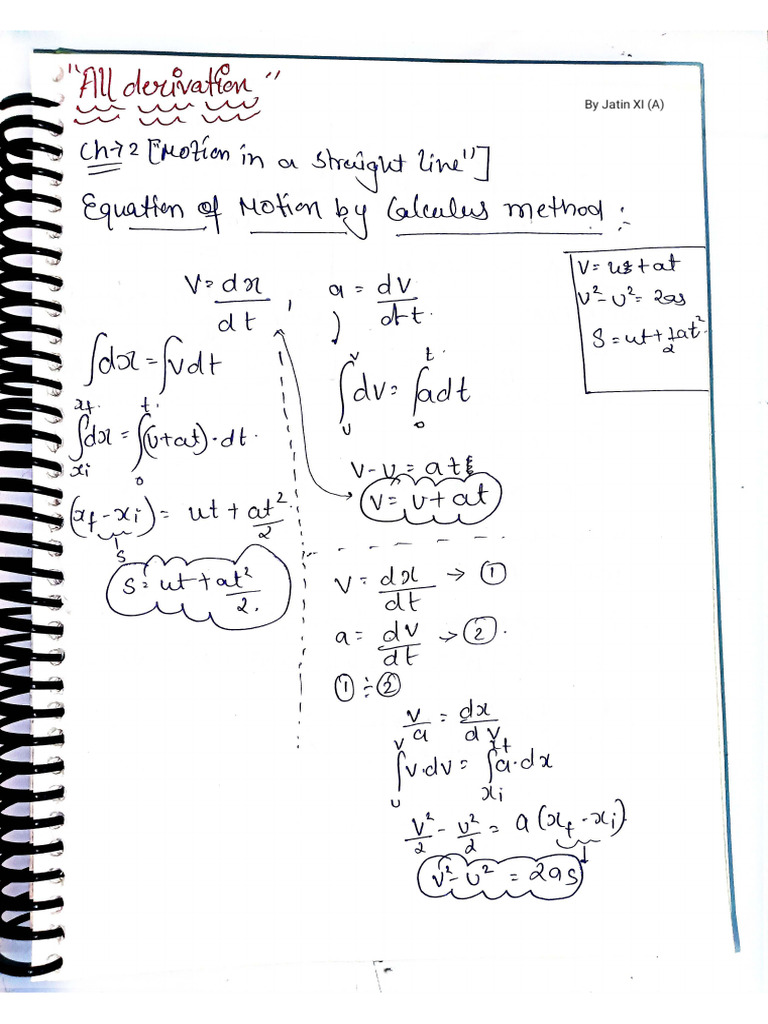 "All derivation"
By Jatin XI (A)
Ch→2 ["Motion in a straight line"]
Equation of Motion by Calculus method :-
V = u + at
V² - U² = 2as
S = ut + 1/2 at²
V = dx/dt , a = dv/dt
∫dx = ∫vdt
∫_{xi}^{xf} dx = ∫_0^t (u+at)·dt
(xf - xi) = ut + at²/2
S
S = ut + at²/2
∫_u^v dv = ∫_0^t adt
V - U = at
V = U + at
V = dx/dt → ①
a = dv/dt → ②
① ÷ ②
V/a = dx/dv
∫_u^v v·dv = ∫_{xi}^{xf} a·dx
V²/2 - U²/2 = a (xf - xi)
V² - U² = 2as